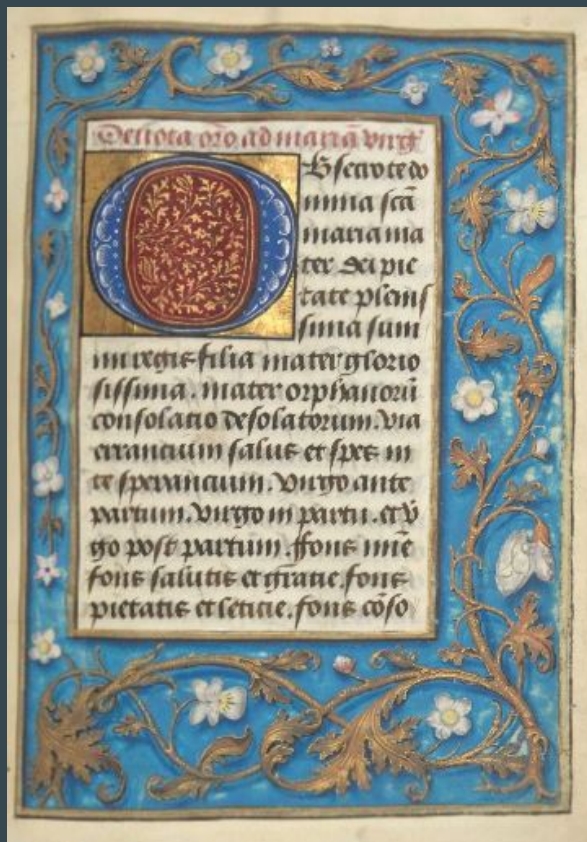 Deuota oro ad mariā virg
Obsecro te do
mina scā
maria ma
ter dei pie
tate plenis
sima sum
mi regis filia mater glorio
sissima. mater orphanorū
consolatio desolatorum. via
errancium salus et spes in
te sperancium. virgo ante
partum. virgo in partu. et v̄
go post partum. ffons mīe
fons salutis et gratie. fons
pietatis et leticie. fons cōso